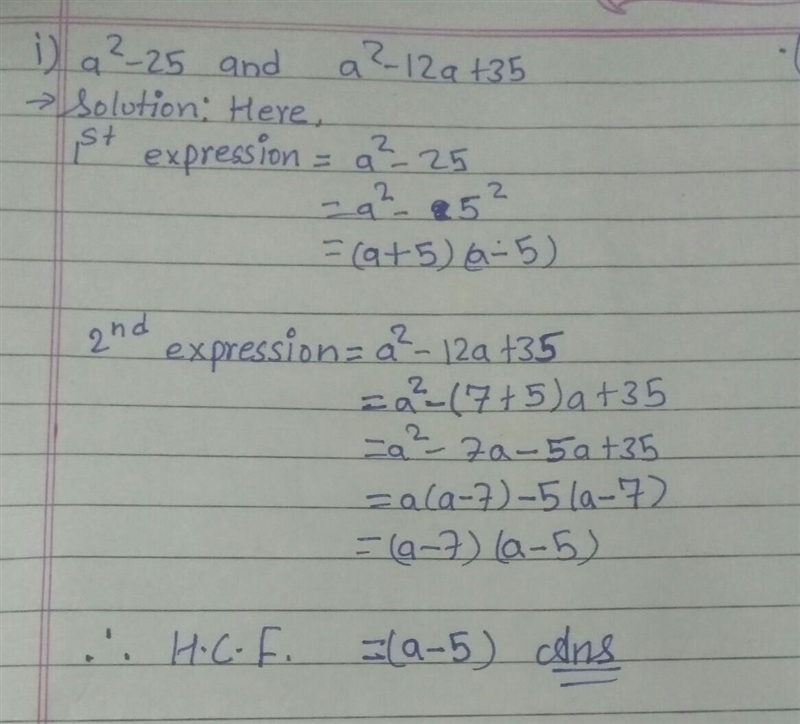 i) a²-25 and a²-12a+35
→ Solution: Here,
1st expression = a²- 25
= a² - 5²
= (a+5) (a-5)
2nd expression = a² - 12a +35
= a² - (7+5)a +35
= a² - 7a - 5a +35
= a(a-7) -5(a-7)
= (a-7) (a-5)
∴ H.C.F. = (a-5) Ans